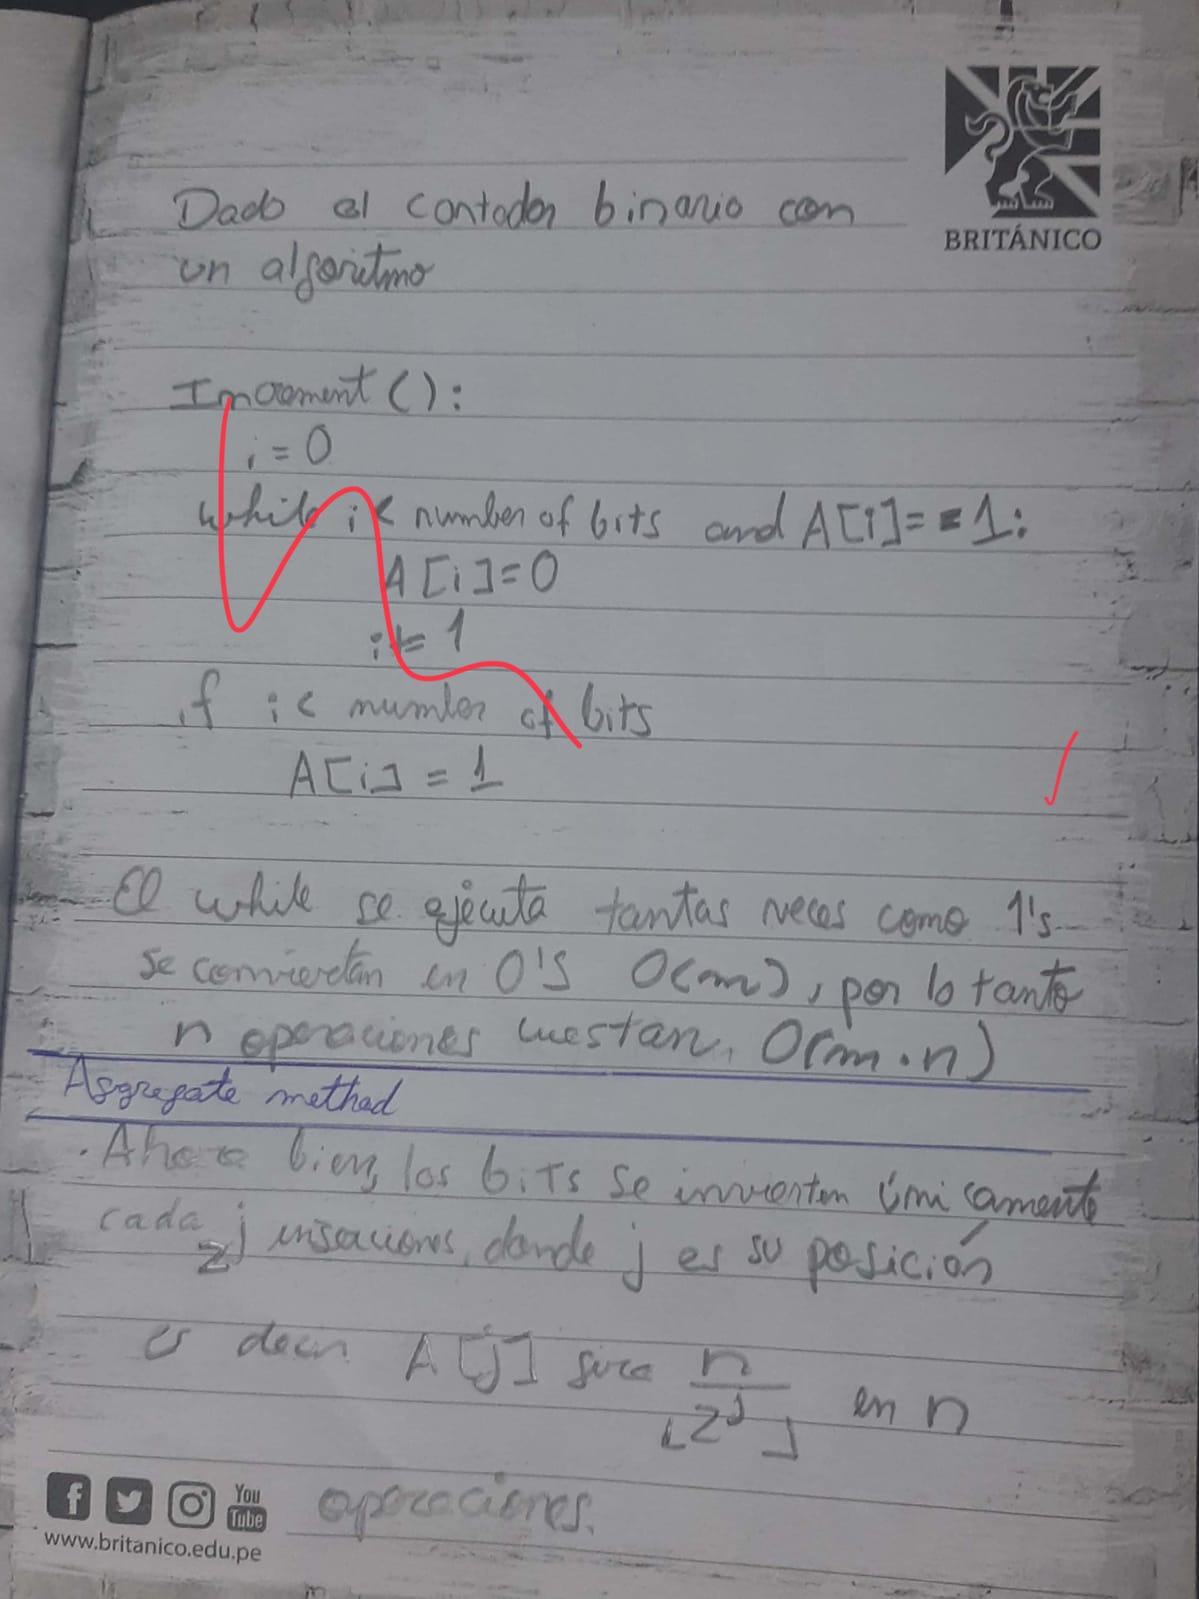 BRITÁNICO
Dado el contador binario con
un algoritmo
Increment():
i = 0
while i < number of bits and A[i]==1:
A[i]=0
i+= 1
if i< number of bits
A[i] = 1
El while se ejecuta tantas veces como 1's
se conviertan en 0'S O(m), por lo tanto
n operaciones cuestan, O(m·n)
Aggregate method
· Ahora bien, los bits se invierten únicamente
cada 2^j inserciones, donde j es su posición
es decir A[j] gira n/⌊2^j⌋ en n
operaciones.
You
Tube
www.britanico.edu.pe